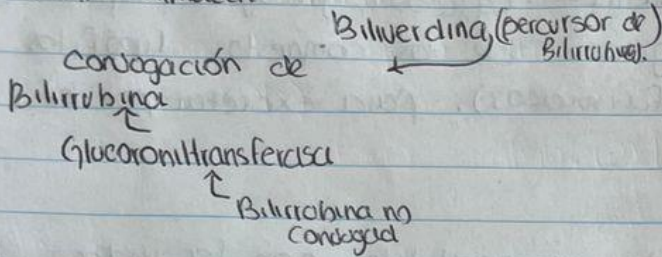 Biliverdina, (percursor de)
Bilirrubina).
Conjugación de
Bilirrubina
Glucoroniltransferasa
Bilirrobina no
Conougad